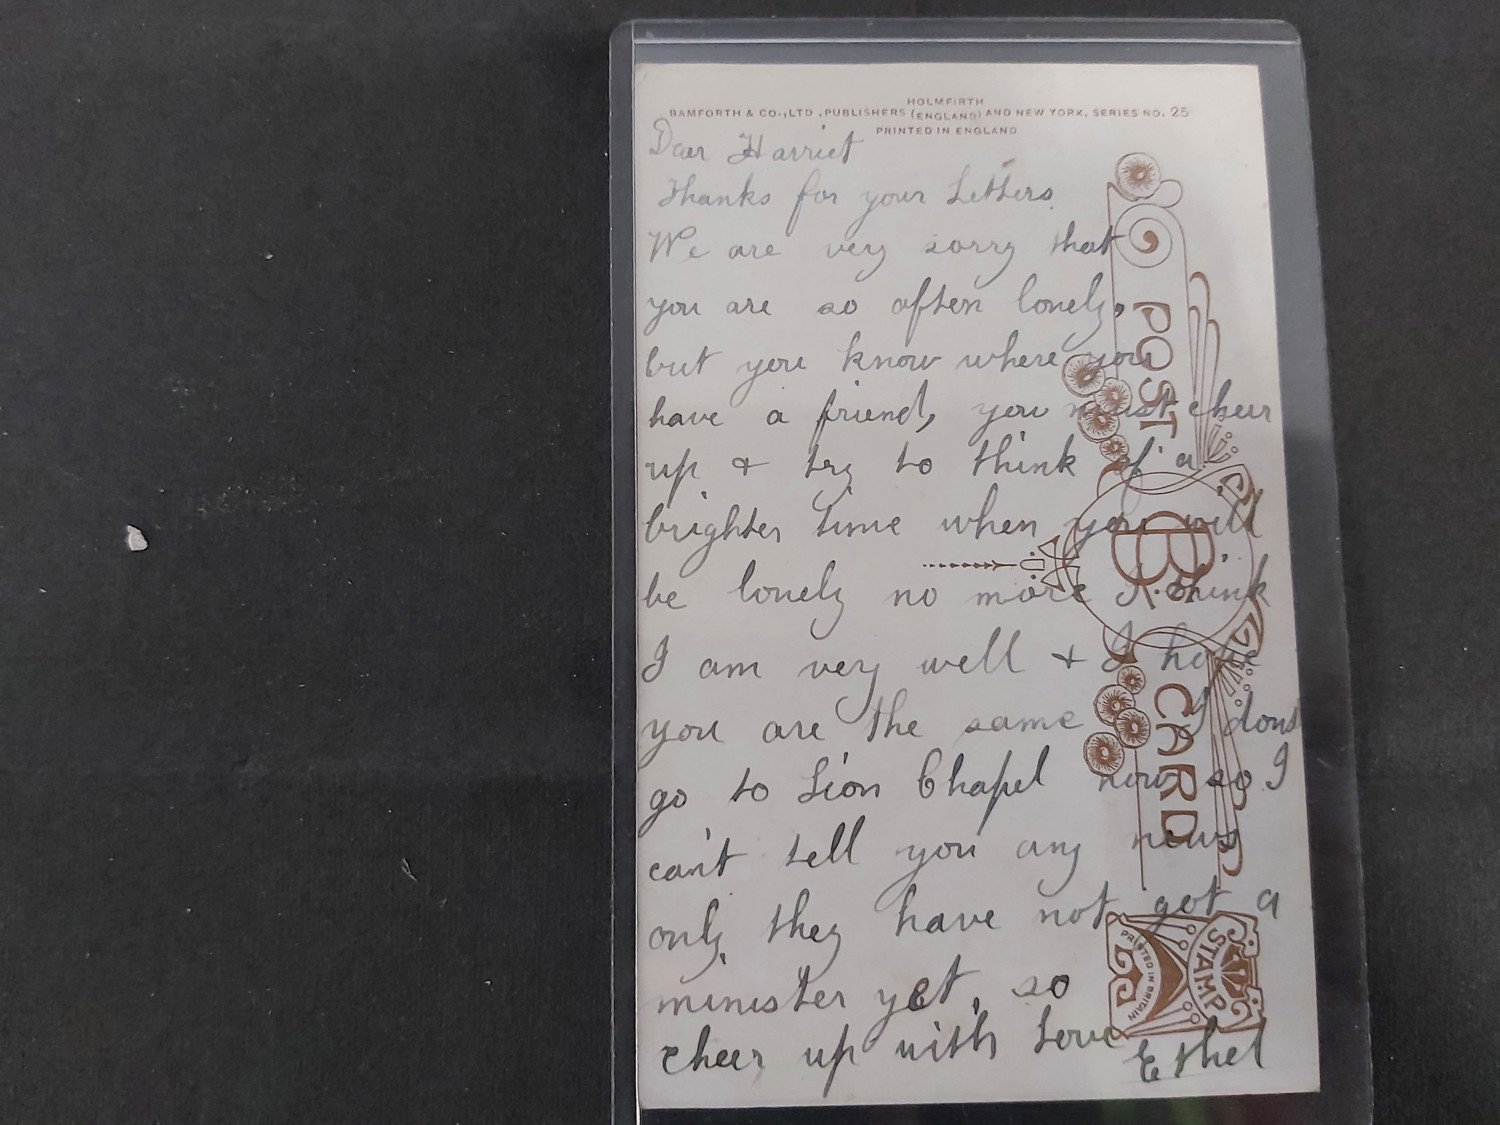 HOLMFIRTH
BAMFORTH & CO., LTD., PUBLISHERS (ENGLAND) AND NEW YORK, SERIES NO. 25
PRINTED IN ENGLAND
Dear Harriet
Thanks for your Letters.
We are very sorry that
you are so often lonely,
but you know where you
have a friend, you must cheer
up & try to think of a
brighter time when you will
be lonely no more I think
I am very well & I hope
you are the same I dont
go to Lion Chapel now so I
can't tell you any news
only they have not got a
minister yet, so
cheer up with Love Ethel
POST CARD
B
STAMP
PRINTED IN BRITAIN